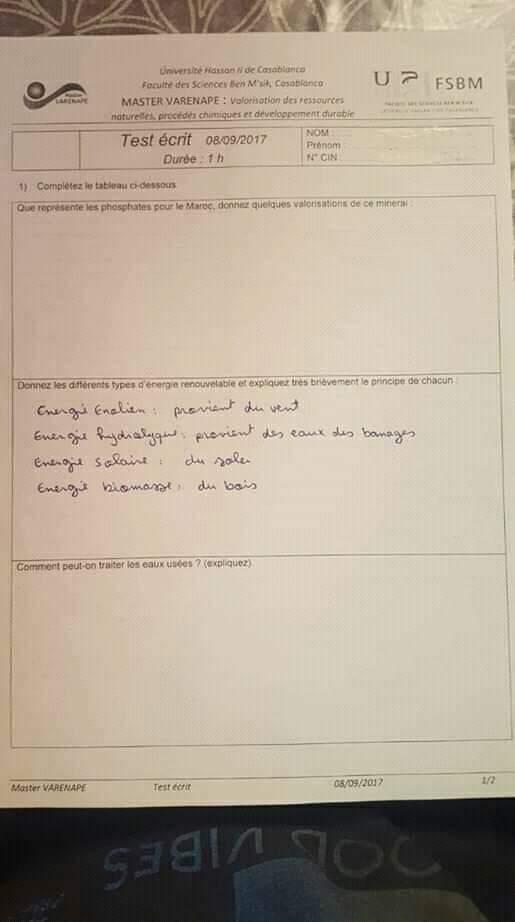 Université Hassan II de Casablanca
Faculté des Sciences Ben M'sik, Casablanca
MASTER VARENAPE : Valorisation des ressources
naturelles, procédés chimiques et développement durable
Master
VARENAPE
FSBM
FACULTÉ DES SCIENCES BEN M'SIK
Test écrit 08/09/2017
Durée : 1 h
NOM :
Prénom
N° CIN
1) Complétez le tableau ci-dessous
Que représente les phosphates pour le Maroc, donnez quelques valorisations de ce minerai :
Donnez les différents types d'énergie renouvelable et expliquez très brièvement le principe de chacun :
Energie Enolien : provient du vent
Energie hydralyque : provient des eaux des barrages
Energie Solaire : du solei
Energie biomasse : du bois
Comment peut-on traiter les eaux usées ? (expliquez)
Master VARENAPE Test écrit 08/09/2017 1/2
VIBES